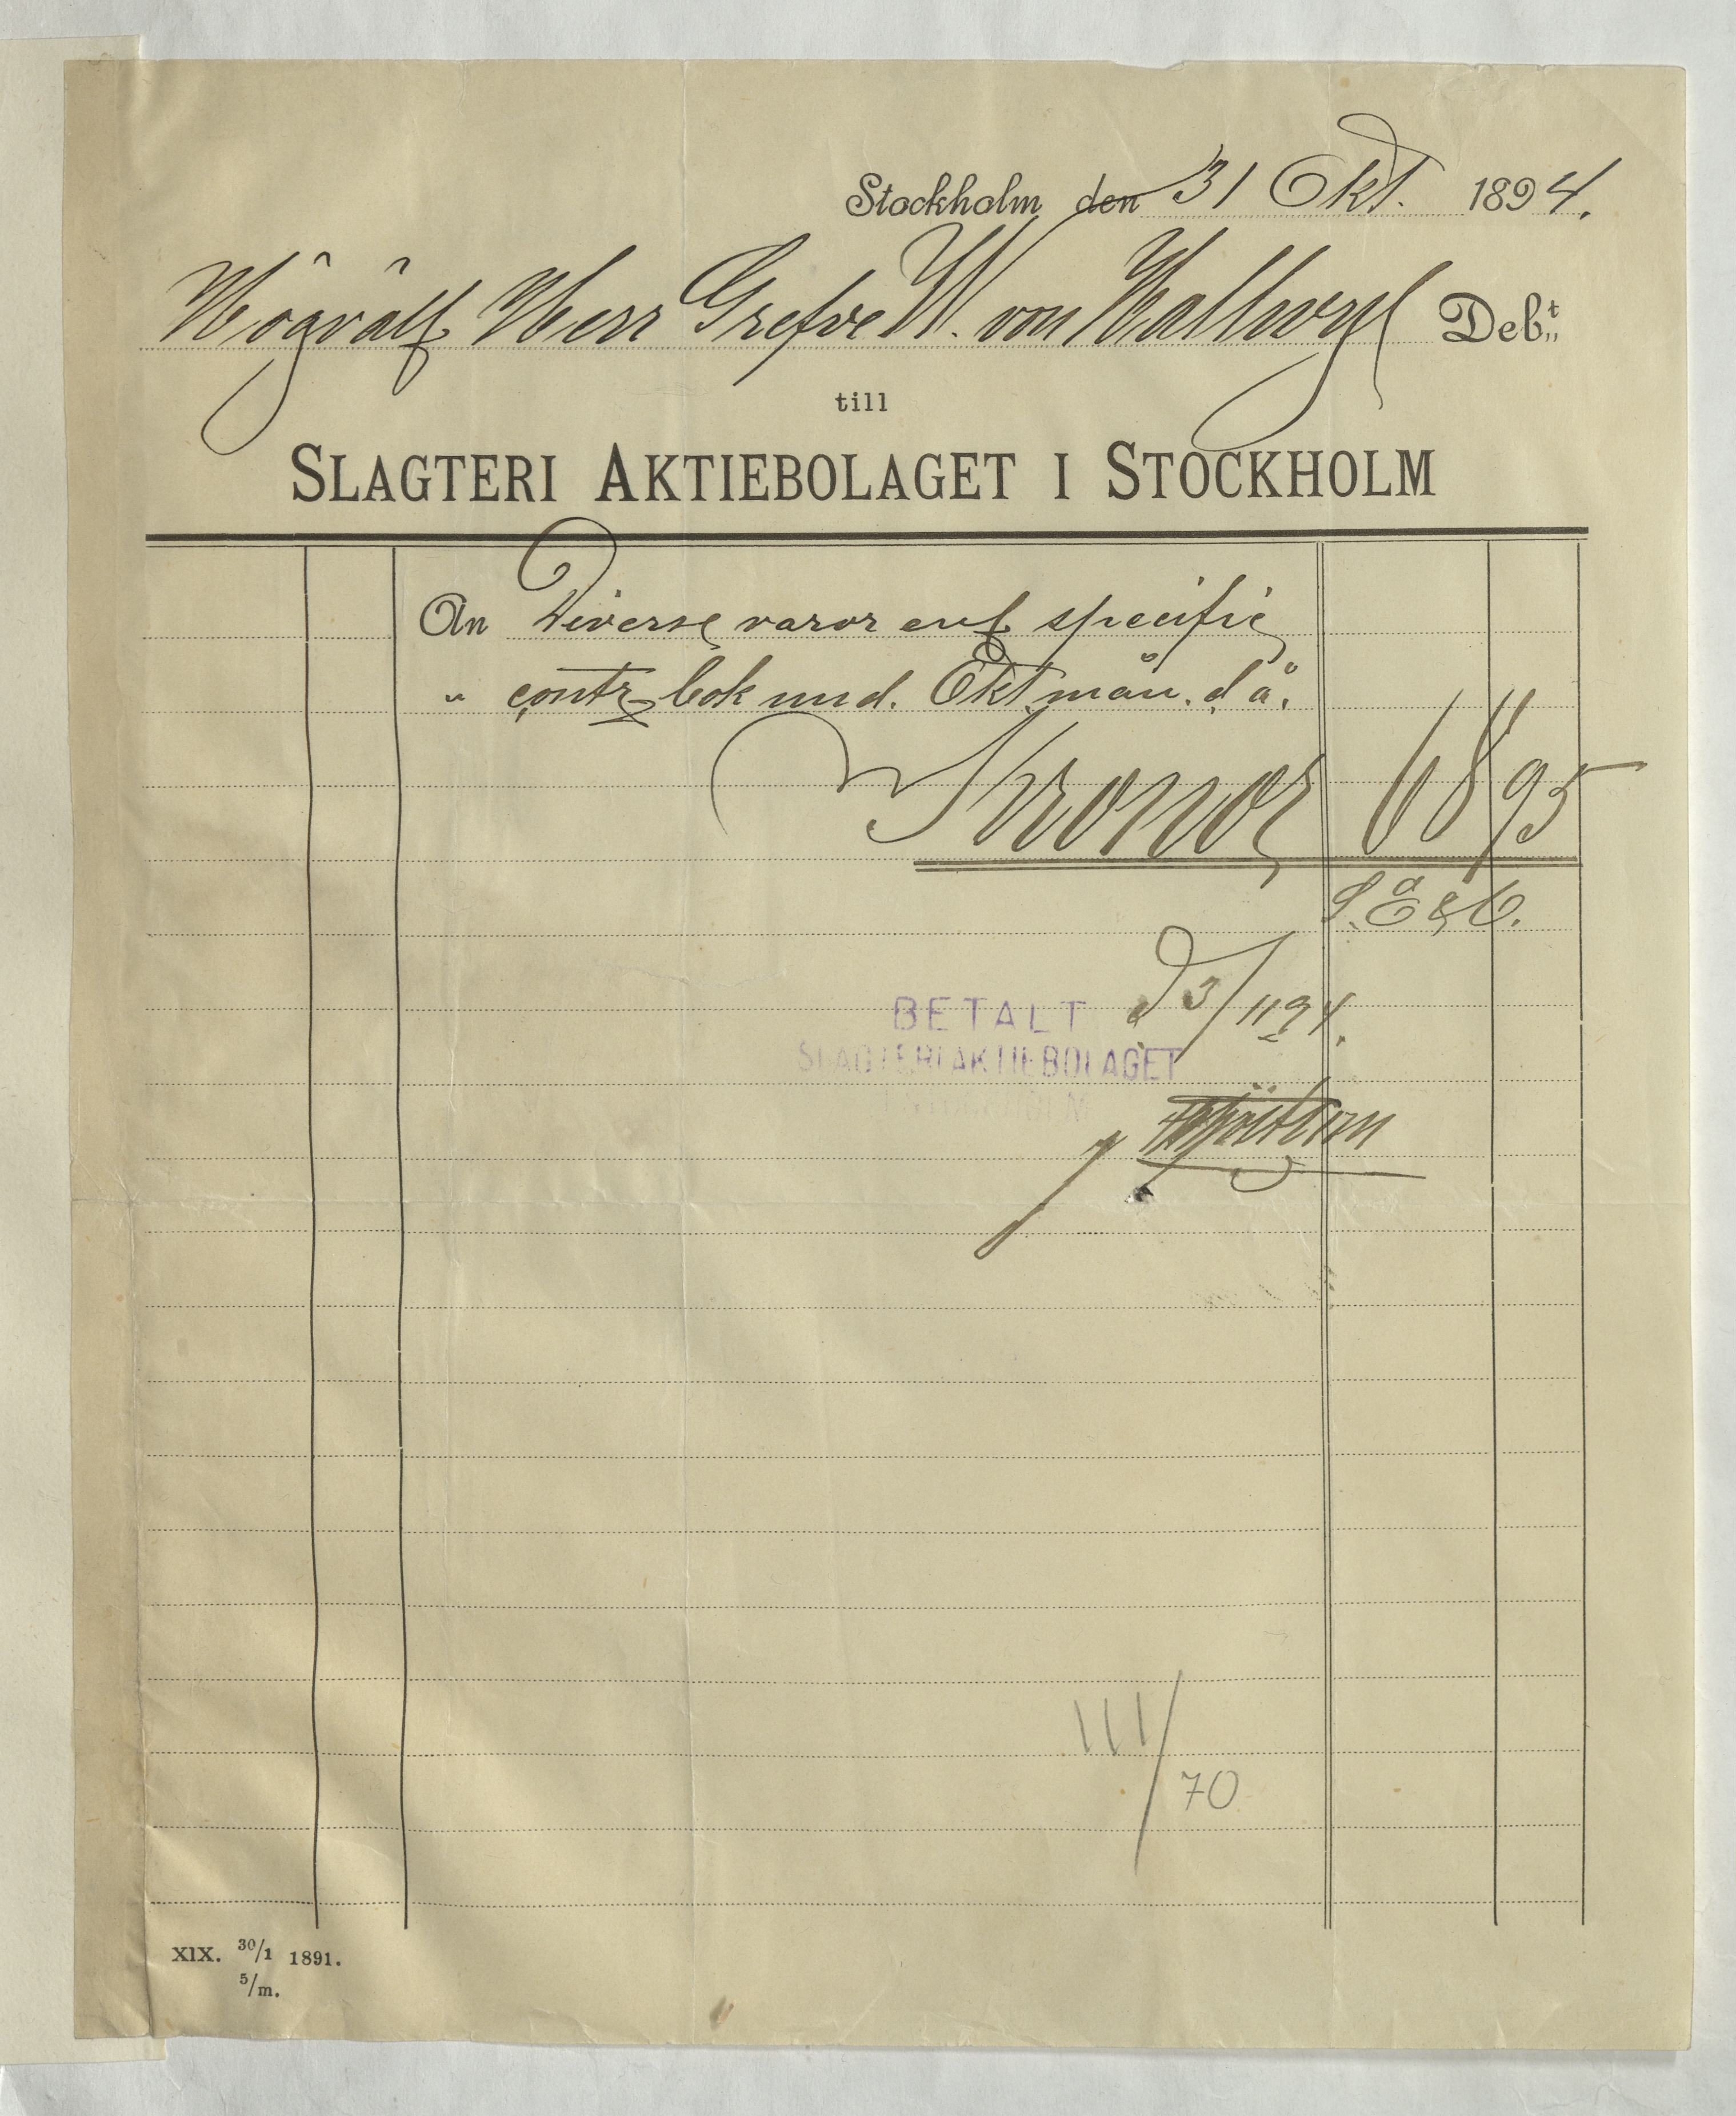 Stockholm den 31 Okt. 1894.
Högvälb Herr Grefve W. von Hallwyl Debt
till
SLAGTERI AKTIEBOLAGET I STOCKHOLM
An Diverse varor enl specific
" contr bok und. Okt mån. d å.
Kronor 68 95
S. E & O.
BETALT d 3/11 94.
SLAGTERIAKTIEBOLAGET
STOCKHOLM
111/70
XIX. 30/1 1891.
5/m.